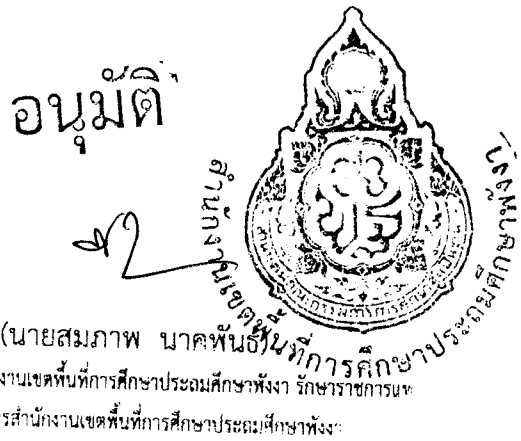 อนุมัติ
สำนักงานเขตพื้นที่การศึกษาประถมศึกษาพังงา
(นายสมภาพ นาคพันธ์)
งานเขตพื้นที่การศึกษาประถมศึกษาพังงา รักษาราชการแท
รสำนักงานเขตพื้นที่การศึกษาประถมศึกษาพังงา